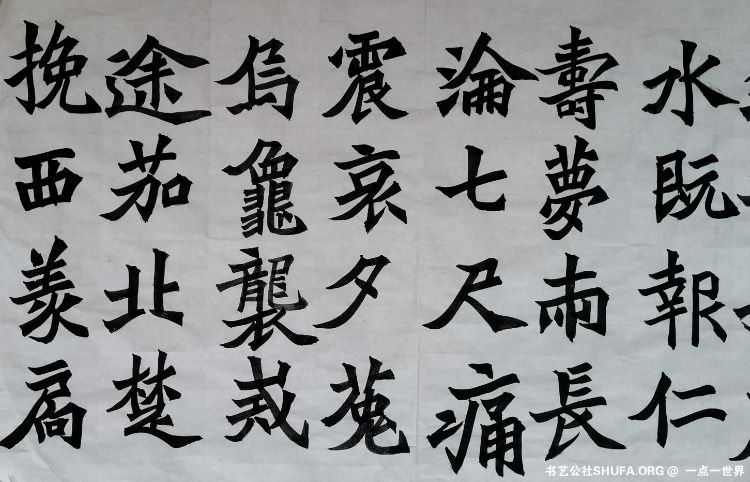 水既報仁
壽夢雨長
淪七尺痛
震哀夕菟
烏龕襲戒
途茄北楚
挽西羨扃
书艺公社SHUFA.ORG @ 一点一世界